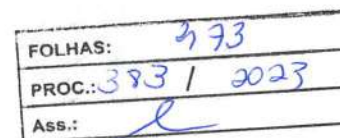 FOLHAS:
PROC.: 383 / 2023
Ass.: